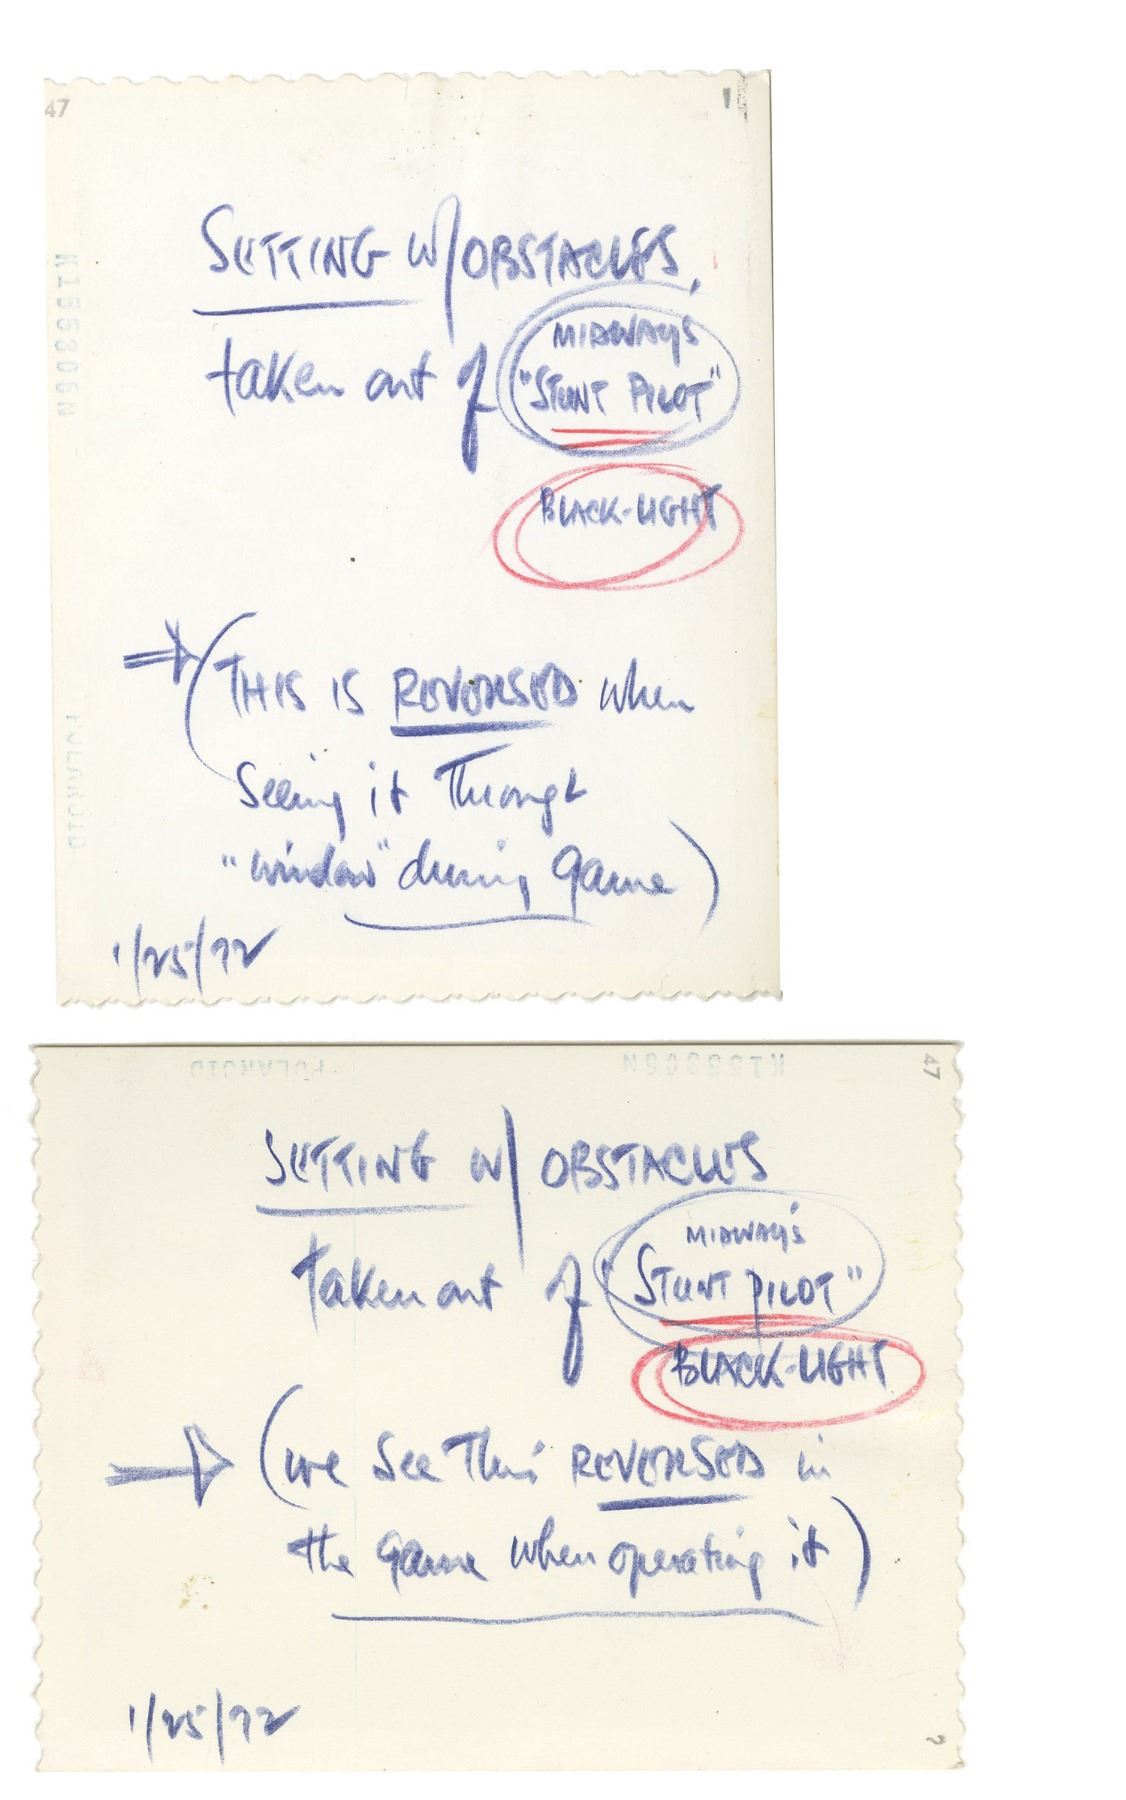 47
1
K1553O6N
POLAROID
SETTING W/OBSTACLES,
taken out of
MIDWAYS
"STUNT PILOT"
BLACK-LIGHT
(THIS IS REVERSED when
seeing it through
"window" during game)
1/25/72
POLAROID
47
SETTING W/ OBSTACLES
taken out of
MIDWAY'S
"STUNT PILOT"
BLACK-LIGHT
(we see this REVERSED in
the game when operating it)
1/25/72
2